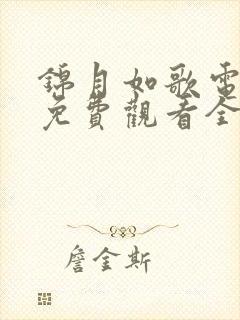 錦月如歌電
免費觀看全
詹金斯